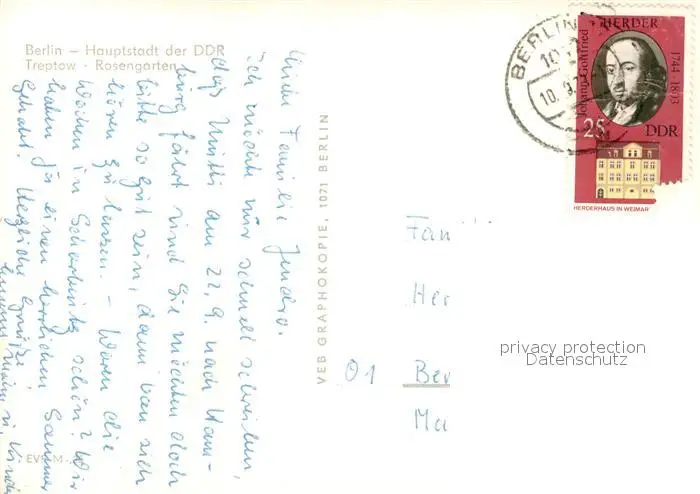 Berlin – Hauptstadt der DDR
Treptow - Rosengarten
Familie
ich möchte nur schnell schreiben,
daß am 22.9. nach Ham-
burg fährt und Sie möchten doch
bitte so gut sein, dann von sich
hören zu lassen. – Waren die
Wochen in Scharbeutz schön? Wir
haben ja einen herrlichen Sommer
gehabt. Herzliche Grüße
VEB GRAPHOKOPIE, 1071 BERLIN
BERLIN
10.9.
Johann Gottfried
HERDER
1744-1803
25
DDR
HERDERHAUS IN WEIMAR
Fam
Her
01 Ber
Ma
privacy protection
Datenschutz